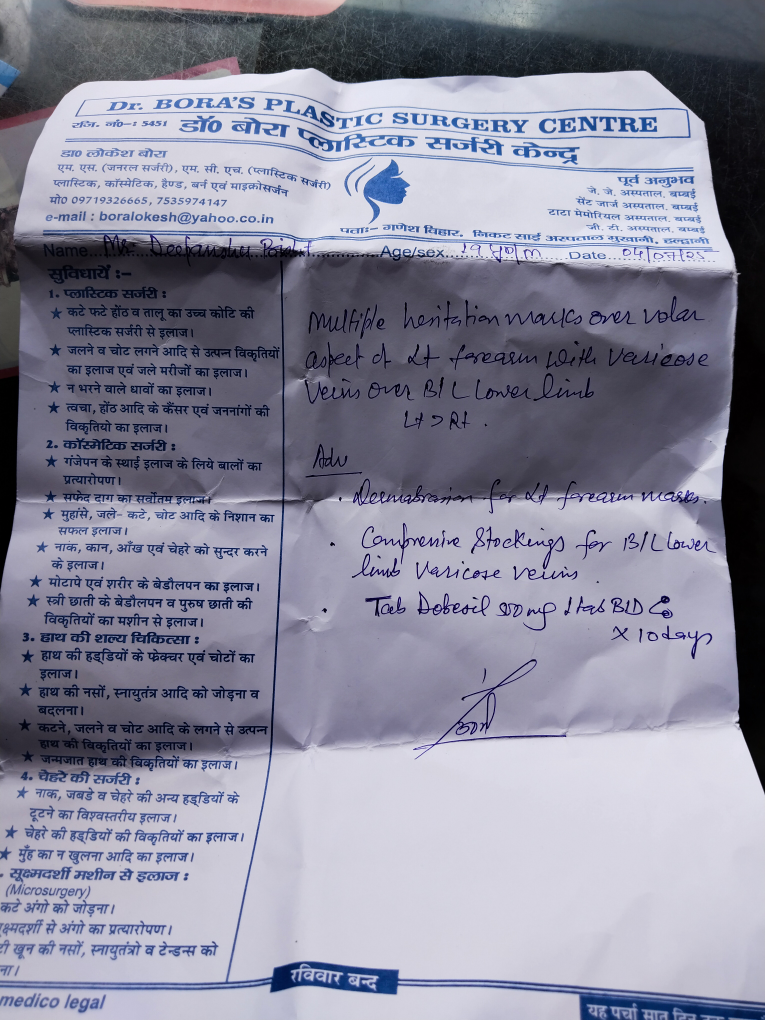 Dr. BORA'S PLASTIC SURGERY CENTRE
रजि. नं०-: 5451 डॉ0 बोरा प्लास्टिक सर्जरी केन्द्र
डा0 लोकेश बोरा
एम. एस. (जनरल सर्जरी), एम. सी. एच. (प्लास्टिक सर्जरी)
प्लास्टिक, कॉस्मेटिक, हैण्ड, बर्न एवं माइक्रोसर्जन
मो0 09719326665, 7535974147
e-mail : boralokesh@yahoo.co.in
पूर्व अनुभव
जे. जे. अस्पताल, बम्बई
सेंट जार्ज अस्पताल, बम्बई
टाटा मेमोरियल अस्पताल, बम्बई
जी. टी. अस्पताल, बम्बई
पताः- गणेश विहार, निकट साई अस्पताल मुखानी, हल्द्वानी
Name.. Mr. Deepanshu ....Age/sex.. 19 yo/m ..Date.. 04/07/25
सुविधायें :-
1. प्लास्टिक सर्जरी :
★ कटे फटे होंठ व तालू का उच्च कोटि की
प्लास्टिक सर्जरी से इलाज।
★ जलने व चोट लगने आदि से उत्पन विकृतियों
का इलाज एवं जले मरीजों का इलाज।
★ न भरने वाले धावों का इलाज।
★ त्वचा, होंठ आदि के कैंसर एवं जननांगों की
विकृतियो का इलाज।
2. कॉस्मेटिक सर्जरी :
★ गंजेपन के स्थाई इलाज के लिये बालों का
प्रत्यारोपण।
★ सफेद दाग का सर्वोतम इलाज।
★ मुहांसे, जले- कटे, चोट आदि के निशान का
सफल इलाज।
★ नाक, कान, आँख एवं चेहरे को सुन्दर करने
के इलाज।
★ मोटापे एवं शरीर के बेडौलपन का इलाज।
★ स्त्री छाती के बेडौलपन व पुरुष छाती की
विकृतियों का मशीन से इलाज।
3. हाथ की शल्य चिकित्सा :
★ हाथ की हड्डियों के फ्रेक्चर एवं चोटों का
इलाज।
★ हाथ की नसों, स्नायुतंत्र आदि को जोड़ना व
बदलना।
★ कटने, जलने व चोट आदि के लगने से उत्पन
हाथ की विकृतियों का इलाज।
★ जन्मजात हाथ की विकृतियों का इलाज।
4. चेहरे की सर्जरी :
★ नाक, जबडे व चेहरे की अन्य हड्डियों के
टूटने का विश्वस्तरीय इलाज।
★ चेहरे की हड्डियों की विकृतियों का इलाज।
★ मुँह का न खुलना आदि का इलाज।
. सूक्ष्मदर्शी मशीन से इलाज :
(Microsurgery)
कटे अंगो को जोड़ना।
क्ष्मदर्शी से अंगो का प्रत्यारोपण।
टी खून की नसों, स्नायुतंत्रो व टेन्डन्स को
ना।
Multiple hesitation marks over volar
aspect of Lt forearm with varicose
veins over B/L lower limb
Lt > Rt .
Adv
. Dermabrasion for Lt forearm marks.
. Compressive Stockings for B/L lower
limb varicose veins .
. Tab Dobesil 500mg 1tab BID
x 10 days
रविवार बन्द
medico legal
यह पर्चा सात दिन